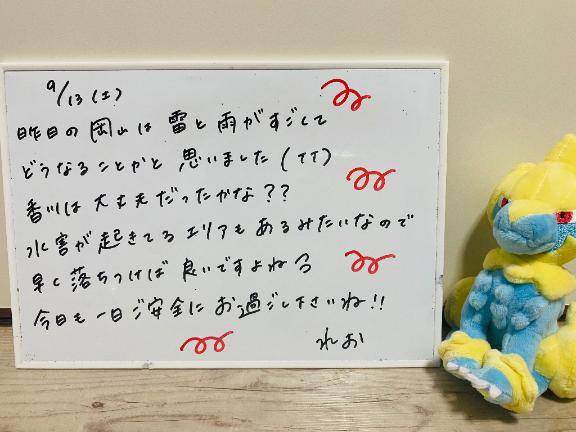 9/13(土)
昨日の岡山は雷と雨がすごくて
どうなることかと思いました(TT)
香川は大丈夫だったかな??
水害が起きてるエリアもあるみたいなので
早く落ちつけば良いですよね
今日も一日ご安全にお過ごし下さいね!!
れお